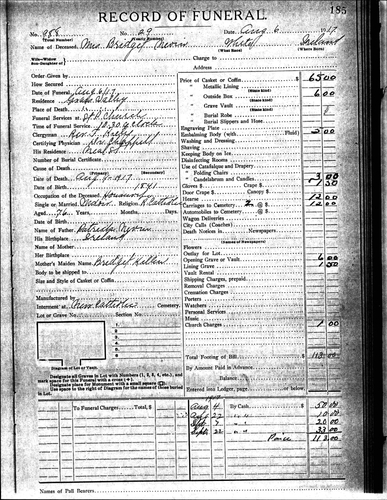 RECORD OF FUNERAL.
185
No. 988 No. 29 Date, Aug 6 1917
(Total Number) (Yearly Number)
Name of Deceased, Mrs Bridget Nevin White Ireland
(What Race) (Where Born)
Wife—Widow
Son—Daughter of
Charge to
Order Given by
How Secured
Date of Funeral Aug 6/17
Residence
Place of Death
Funeral Services at Church
Time of Funeral Service 10.30 o'clock
Clergyman Rev.
Certifying Physician
His Residence
Number of Burial Certificate
Cause of Death
(Primary) (Secondary)
Date of Death Aug 4 1917
Date of Birth 1841
Occupation of Deceased
Single or Married Widow Religion R. Catholic
Aged 76 Years, Months, Days.
Date of Birth
Name of Father Patrick Nevin
His Birthplace Ireland
Name of Mother
Her Birthplace
Mother's Maiden Name Bridget
Body to be shipped to
Size and Style of Casket or Coffin
Manufactured by
Interment at Cemetery.
Lot or Grave No. Section No.
1
2
3
4
5
Diagram of Lot or Vault.
Designate all Graves in Lot with Numbers (1, 2, 3, 4, etc.), and mark space for this Funeral with a cross (+).
Designate place for Monument with a small square (□).
Diagrams to be made for names of those buried in Lot.
Price of Casket or Coffin $65.00
" Metallic Lining
" Outside Box 6.00
(State kind)
" Grave Vault
(State kind)
" Burial Robe
(State kind)
" Burial Slippers and Hose
Engraving Plate
Embalming Body (with Fluid) 2.00
Washing and Dressing
Shaving
Keeping Body on Ice
Disinfecting Rooms
Use of Catafalque and Drapery
" Folding Chairs
" Candelabrum and Candles 3.00
Gloves $ Crape $ 1.50
Door Crape Canopy
Hearse 12.00
Carriages to Cemetery 2 @ $ 12.00
Automobiles to Cemetery @ $
Wagon Deliveries
City Calls (Coaches)
Death Notices in Newspapers
(Names of Newspapers)
Flowers
Outlay for Lot
Opening Grave or Vault 6.00
Lining Grave 1.50
Vault Rental
Shipping Charges, prepaid
Removal Charges
Cremation Charges
Porters
Watchers
Personal Services
Music
Church Charges 1.00
Total Footing of Bill $ 113.00
By Amount Paid in Advance
Balance
Entered into Ledger, page or below.
To Funeral Charges Total, $
1917
Aug 4 By Cash $ 50.00
Aug 22 " " 10.00
Sept 7 " " 20.00
Sept 22 " " 33.00
113.00
Names of Pall Bearers